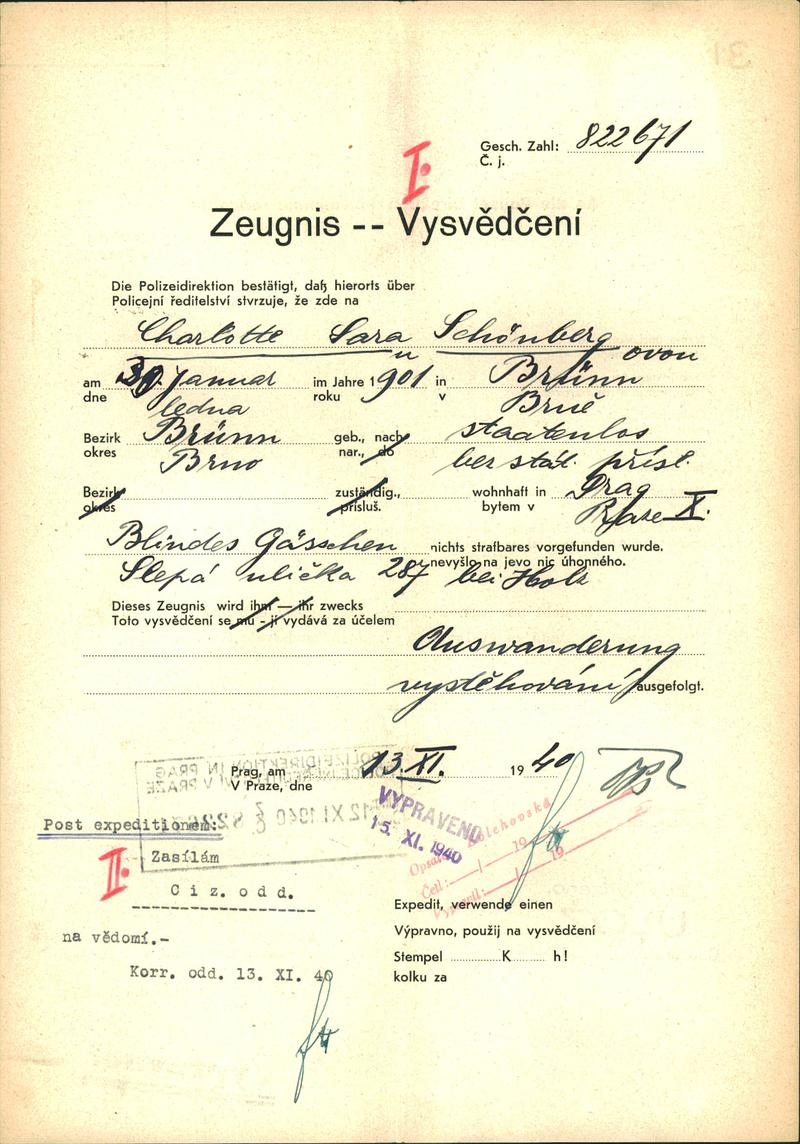 Gesch. Zahl: 822671
Č. j.
I.
Zeugnis -- Vysvědčení
Die Polizeidirektion bestätigt, daß hierorts über
Policejní ředitelství stvrzuje, že zde na
Charlotte Sara Schönberg
ovou
am 30. Januar im Jahre 1901 in Brünn
dne ledna roku v Brně
Bezirk Brünn geb., nach staatenlos
okres Brno nar., do bez stát. přísl.
Bezirk zuständig., wohnhaft in Prag
okres přísluš. bytem v Praze X.
Blindes Gässchen nichts strafbares vorgefunden wurde.
nevyšlo na jevo nic úhonného.
Slepá ulička bei Holz
Dieses Zeugnis wird ihm — ihr zwecks
Toto vysvědčení se mu - jí vydává za účelem
Auswanderung
vystěhování ausgefolgt.
Prag, am 13. XI. 1940
V Praze, dne
POLIZEIDIREKTION IN PRAG
V PRAZE
12 XI 1940
VYPRAVENO
15. XI. 1940
Post expeditionem:
II.
Zasílám
Ciz. odd.
na vědomí.-
Korr. odd. 13. XI. 40
Četl: — | — 19
19
Expedit, verwende einen
Výpravno, použij na vysvědčení
Stempel K h!
kolku za